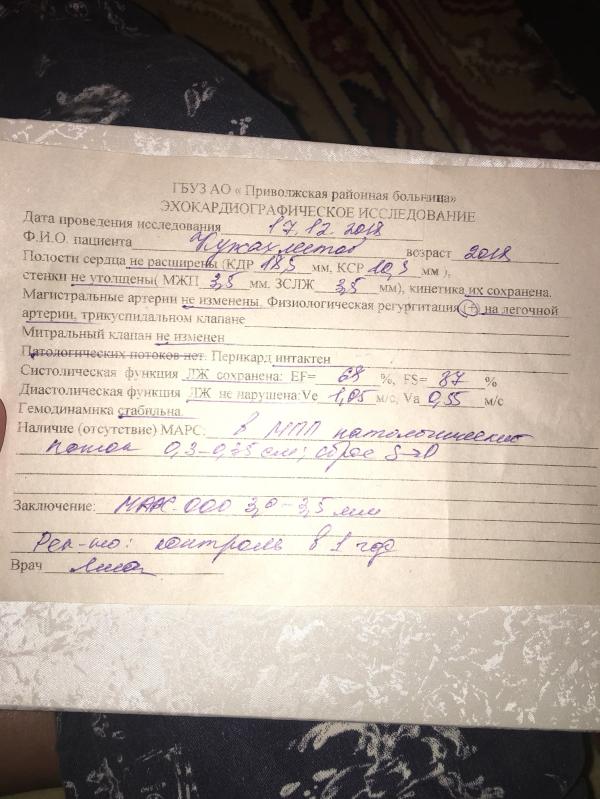 ГБУЗ АО « Приволжская районная больница»
ЭХОКАРДИОГРАФИЧЕСКОЕ ИССЛЕДОВАНИЕ
Дата проведения исследования 17.12.2018
Ф.И.О. пациента возраст 2018
Полости сердца не расширены (КДР 18,5 мм, КСР 10,3 мм ),
стенки не утолщены( МЖП 3,5 мм. ЗСЛЖ 3,5 мм), кинетика их сохранена.
Магистральные артерии не изменены. Физиологическая регургитация (+) на легочной
артерии, трикуспидальном клапане
Митральный клапан не изменен
Патологических потоков нет. Перикард интактен
Систолическая функция ЛЖ сохранена: EF= % , FS= 37 %
Диастолическая функция ЛЖ не нарушена:Ve 1,05 м/с, Va 0,55 м/с
Гемодинамика стабильна.
Наличие (отсутствие) МАРС: в МПП патологический
поток 0,3-0,35 см; сброс S→D
Заключение: МАРС. ООО 3,0-3,5 мм
Рек-но: контроль в 1 год
Врач